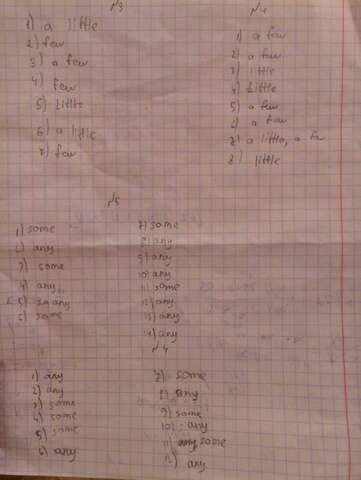 N3
1) a little
2) few
3) a few
4) few
5) little
6) a little
7) few
N4
1) a few
2) a few
3) little
4) little
5) a few
6) a few
7) a little, a
8) little
N5
1) some
2) any
3) some
4) any
5) any
6) some
7) some
8) any
9) any
10) any
11) some
12) any
13) any
14) any
1) any
2) any
3) some
4) some
5) some
6) any
7) some
8) any
9) some
10) any
11) some
12) any